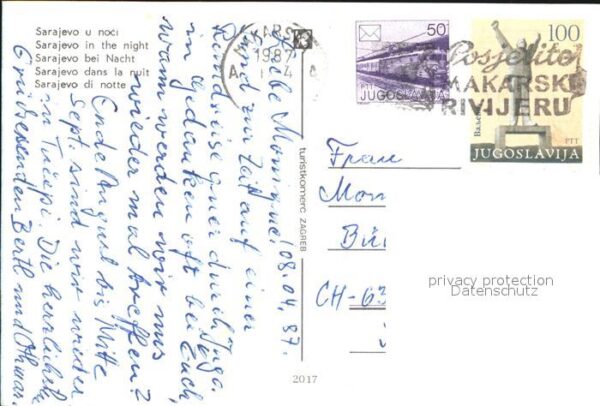 Sarajevo u noći
Sarajevo in the night
Sarajevo bei Nacht
Sarajevo dans la nuit
Sarajevo di notte
MAKARSKA
1987
A 4 A
50
JUGOSLAVIJA
100
PTT
JUGOSLAVIJA
Posjetite
MAKARSKU
RIVIJERU
08.04.87.
Liebe Monique!
Sind zur Zeit auf einer
Rundreise quer durch Juga.
in Gedanken oft bei Euch,
wann werden wir uns
wieder mal treffen?
Ende August bis Mitte
Sept. sind wir wieder
in Tučepi. Die herrlichsten
Grüsse senden Bertl und Othmar.
turistkomerc ZAGREB
Frau
Mon
Bü
CH-63
privacy protection
Datenschutz
2017